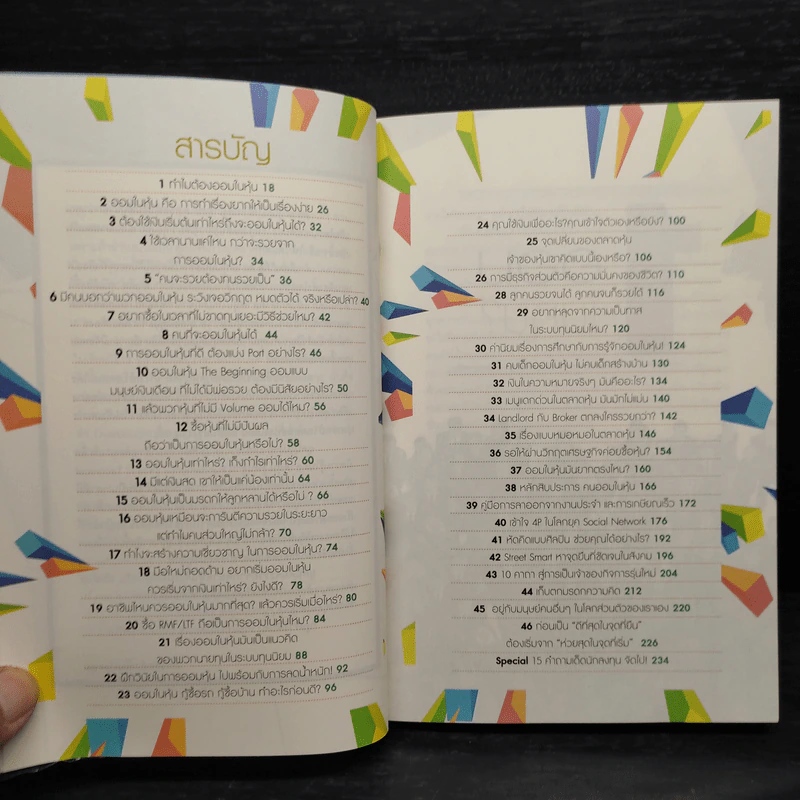 สารบัญ
1 ทำไมต้องออมในหุ้น 18
2 ออมในหุ้น คือ การทำเรื่องยากให้เป็นเรื่องง่าย 26
3 ต้องใช้เงินเริ่มต้นเท่าไหร่ถึงจะออมในหุ้นได้? 32
4 ใช้เวลานานแค่ไหน กว่าจะรวยจาก
การออมในหุ้น? 34
5 "คนจะรวยต้องทนรวยเป็น" 36
6 มีคนบอกว่าพวกออมในหุ้น ระวังเจอวิกฤต หมดตัวได้ จริงหรือเปล่า? 40
7 อยากซื้อในเวลาที่ไม่ขาดทุนเยอะมีวิธีช่วยไหม? 42
8 คนที่จะออมในหุ้นได้ 44
9 การออมในหุ้นที่ดี ต้องแบ่ง Port อย่างไร? 46
10 ออมในหุ้น The Beginning ออมแบบ
มนุษย์เงินเดือน ที่ไม่ได้มีพ่อรวย ต้องมีนิสัยอย่างไร? 50
11 แล้วพวกหุ้นที่ไม่มี Volume ออมได้ไหม? 56
12 ซื้อหุ้นที่ไม่มีปันผล
ถือว่าเป็นการออมในหุ้นหรือไม่? 58
13 ออมในหุ้นเท่าไหร่? เก็งกำไรเท่าไหร่? 60
14 มีแต่เงินสด เขาให้เป็นแค่น้องเท่านั้น 64
15 ออมในหุ้นเป็นมรดกให้ลูกหลานได้หรือไม่ ? 66
16 ออมหุ้นเหมือนจะการันตีความรวยในระยะยาว
แต่ทำไมคนส่วนใหญ่ไม่กล้า? 70
17 ทำไงจะสร้างความเชี่ยวชาญ ในการออมในหุ้น? 74
18 มือใหม่ถอดด้าม อยากเริ่มออมในหุ้น
ควรเริ่มจากเงินเท่าไหร่? ยังไงดี? 78
19 อาชีพไหนควรออมในหุ้นมากที่สุด? แล้วควรเริ่มเมื่อไหร่? 80
20 ซื้อ RMF/LTF ถือเป็นการออมในหุ้นไหม? 84
21 เรื่องออมในหุ้นมันเป็นแนวคิด
ของพวกนายทุนในระบบทุนนิยม 88
22 ฝึกวินัยในการออมหุ้น ไปพร้อมกับการลดน้ำหนัก! 92
23 ออมในหุ้น กู้ซื้อรถ กู้ซื้อบ้าน ทำอะไรก่อนดี? 96
24 คุณใช้เงินเพื่ออะไร?คุณเข้าใจตัวเองหรือยัง? 100
25 จุดเปลี่ยนของตลาดหุ้น
เจ้าของหุ้นเขาคิดแบบนี้เองหรือ? 106
26 การมีธุรกิจส่วนตัวคือความมั่นคงของชีวิต? 110
28 ลูกคนรวยจนได้ ลูกคนจนก็รวยได้ 116
29 อยากหลุดจากความเป็นทาส
ในระบบทุนนิยมไหม? 120
30 ค่านิยมเรื่องการศึกษากับการรู้จักออมในหุ้น! 124
31 คบเด็กออมในหุ้น ไม่คบเด็กสร้างบ้าน 130
32 เงินในความหมายจริงๆ มันคืออะไร? 134
33 เมนูแดกด่วนในตลาดหุ้น มันมักไม่แม่น 140
34 Landlord กับ Broker ตกลงใครรวยกว่า? 142
35 เรื่องแบบหมอหมอในตลาดหุ้น 146
36 รอให้ผ่านวิกฤตเศรษฐกิจค่อยซื้อหุ้น? 154
37 ออมในหุ้นมันยากตรงไหน? 160
38 หลักสิบประการ คนออมในหุ้น 166
39 คู่มือการลาออกจากงานประจำ และการเกษียณเร็ว 172
40 เข้าใจ 4P ในโลกยุค Social Network 176
41 หัดคิดแบบศิลปิน ช่วยคุณได้อย่างไร? 192
42 Street Smart หาจุดยืนที่ชัดเจนในสังคม 196
43 10 คาถา สู่การเป็นเจ้าของกิจการรุ่นใหม่ 204
44 เก็บตกมรดกความคิด 212
45 อยู่กับมนุษย์คนอื่นๆ ในโลกส่วนตัวของเราเอง 220
46 ก่อนเป็น "ดีที่สุดในจุดที่ยืน"
ต้องเริ่มจาก "ห่วยสุดในจุดที่เริ่ม" 226
Special 15 คำถามเด็ดนักลงทุน จัดไป! 234